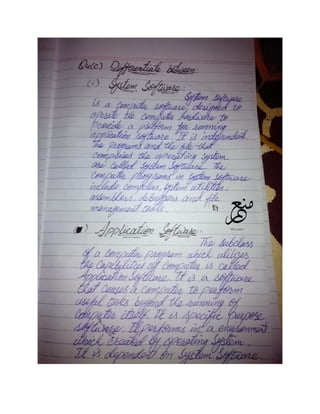 Q.1(c) Differentiate between:
(i) System Software:
System Software
is a computer software, designed to
operate the computer hardware to
provide a platform for running
application software. It is independent
the programs and the file that
comprises the operating system
are called system software. The
computer programs in system software
include compiler, system utilities,
assemblers, debuggers and file
management tools.
Application Software:
The subclass
of a computer program which utilizes
the capabilities of computer is called
Application Software. It is a software
that causes a computer to perform
useful tasks beyond the running of
computer itself. It is specific purpose
software. It performs in a environment
which created by operating system.
It is dependent on System Software.